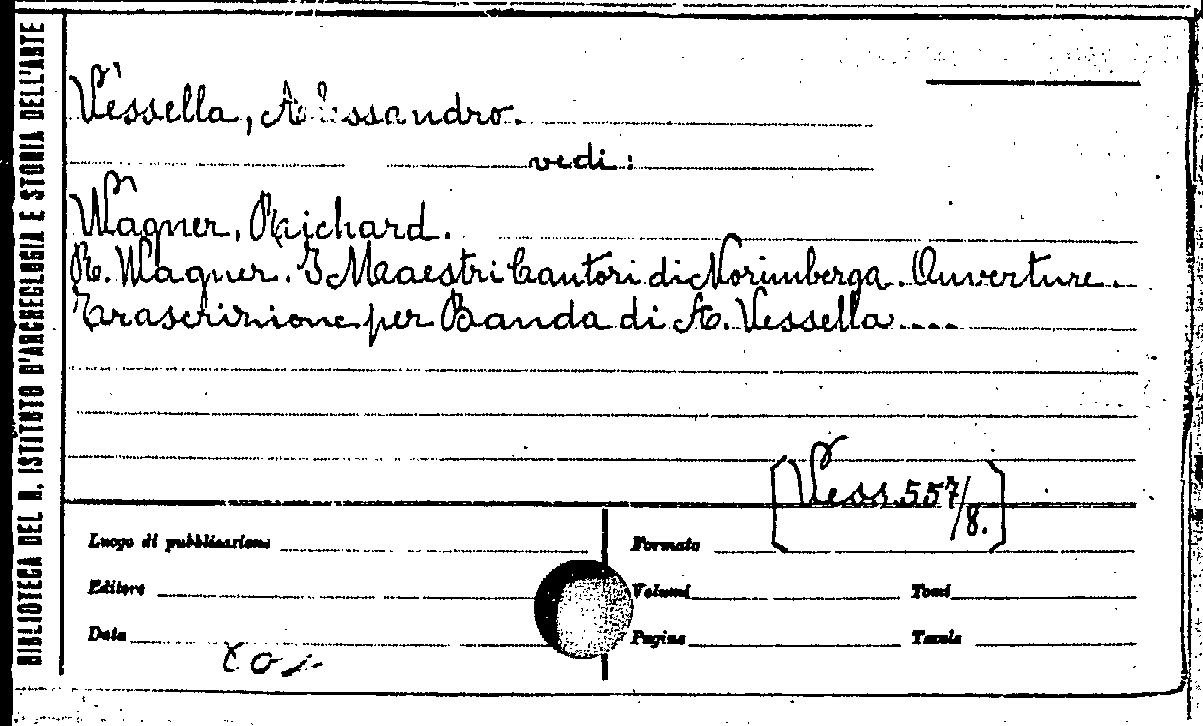 BIBLIOTECA DEL R. ISTITUTO D'ARCHEOLOGIA E STORIA DELL'ARTE
Vessella, Alessandro.
vedi:
Wagner, Richard.
R. Wagner. I Maestri Cantori di Norimberga. Ouverture.
Trascrizione per Banda di A. Vessella....
[Vess. 557/8.]
Luogo di pubblicazione
Formato
Editore
Volumi
Tomi
Data
Pagine
Tavole